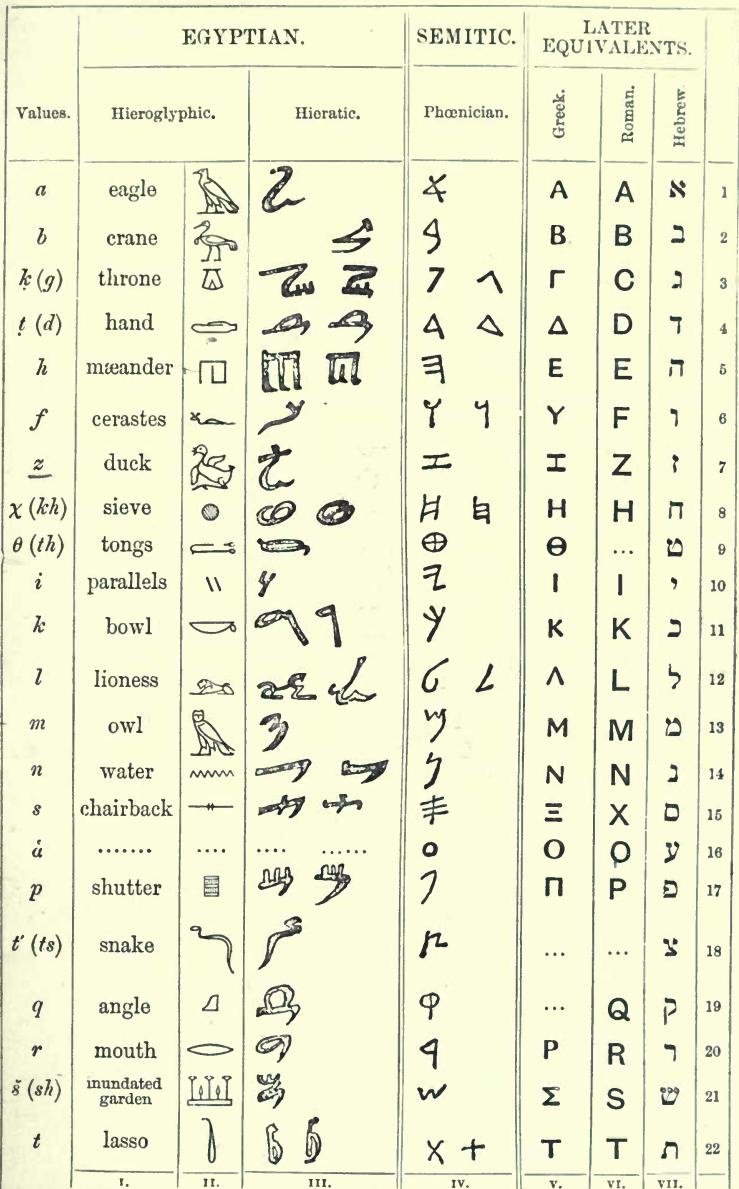 EGYPTIAN. SEMITIC. LATER EQUIVALENTS.
Values. Hieroglyphic. Hieratic. Phœnician. Greek. Roman. Hebrew
a eagle 𐤀 Α A א 1
b crane 𐤁 Β B ב 2
ḳ (g) throne 𐤂 Γ C ג 3
ṭ (d) hand 𐤃 Δ D ד 4
h mæander 𐤄 Ε E ה 5
f cerastes 𐤅 Υ F ו 6
z duck 𐤆 Ι Z ז 7
χ (kh) sieve 𐤇 Η H ח 8
θ (th) tongs 𐤈 Θ ... ט 9
i parallels 𐤉 Ι I י 10
k bowl 𐤊 Κ K כ 11
l lioness 𐤋 Λ L ל 12
m owl 𐤌 Μ M מ 13
n water 𐤍 Ν N נ 14
s chairback 𐤎 Ξ X ס 15
ȧ ....... .... .... ...... 𐤏 Ο O ע 16
p shutter 𐤐 Π P פ 17
t' (ts) snake 𐤑 ... ... צ 18
q angle 𐤒 ... Q ק 19
r mouth 𐤓 Ρ R ר 20
š (sh) inundated garden 𐤔 Σ S ש 21
t lasso 𐤕 Τ T ת 22
I. II. III. IV. V. VI. VII.